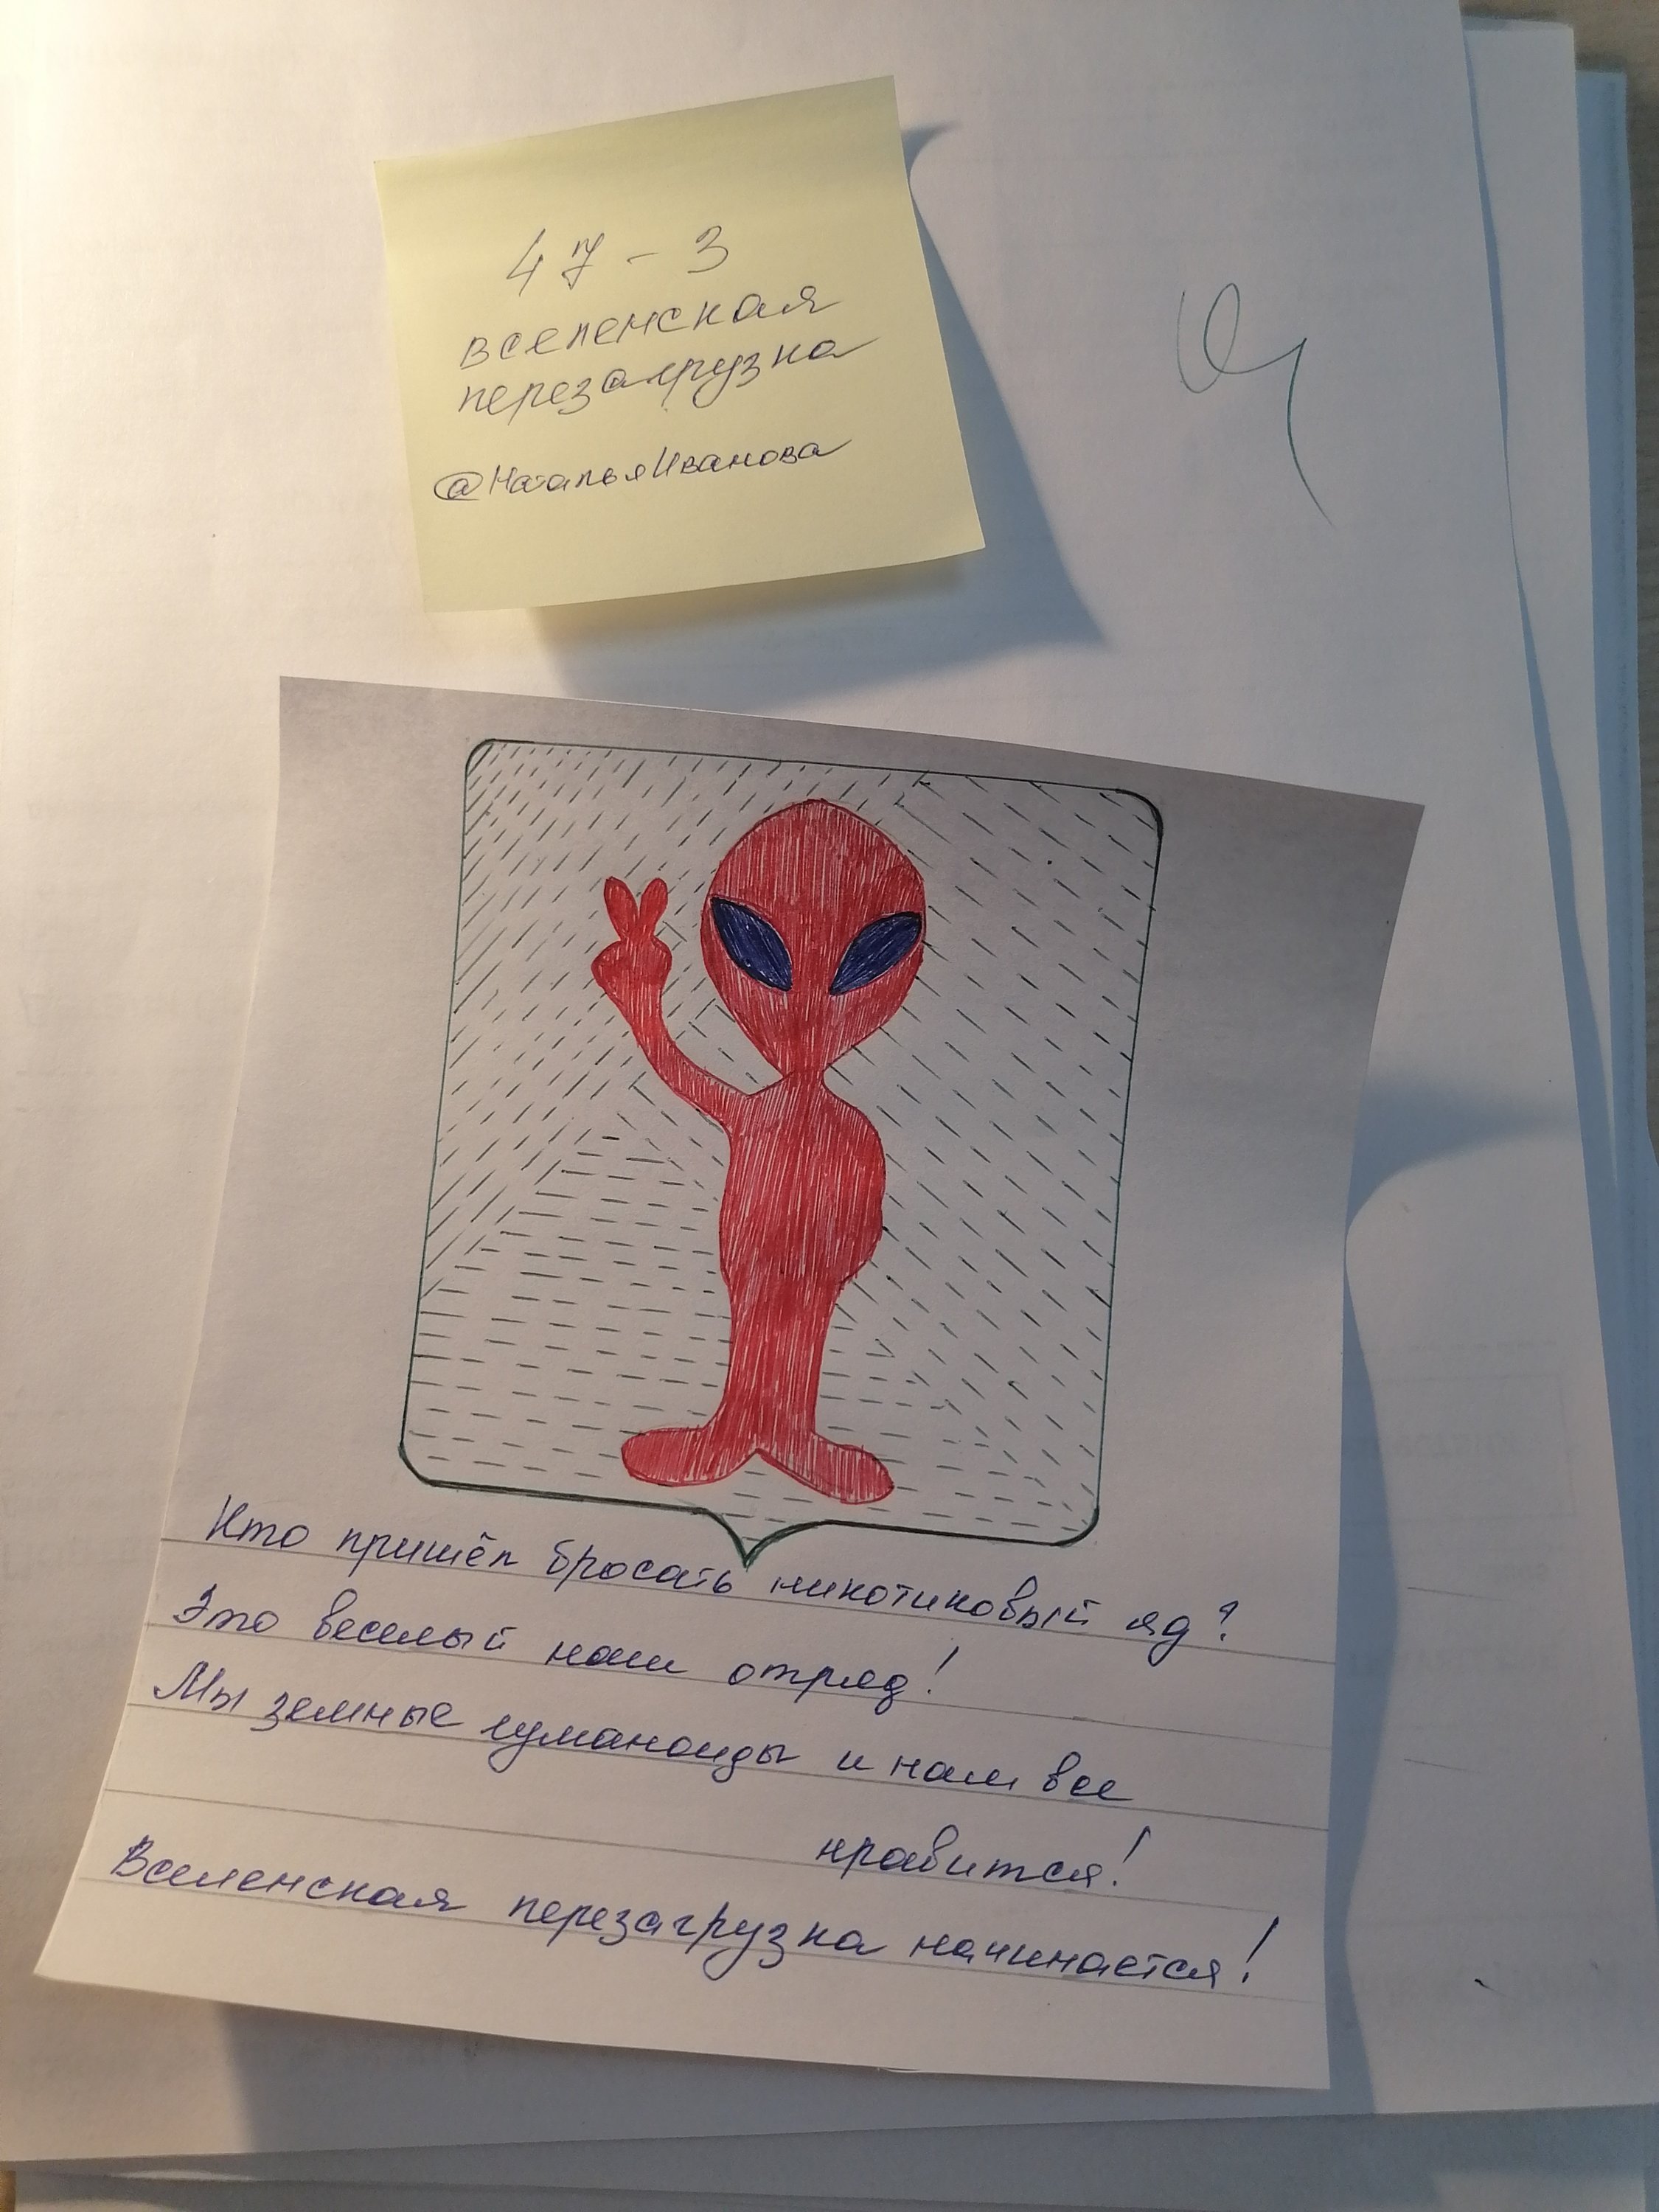 47-3
вселенская
перезагрузка
@НатальяИванова
Кто пришёл бросать никотиновый яд?
Это веселый наш отряд!
Мы земные гуманоиды и нам все
нравится!
Вселенская перезагрузка начинается!